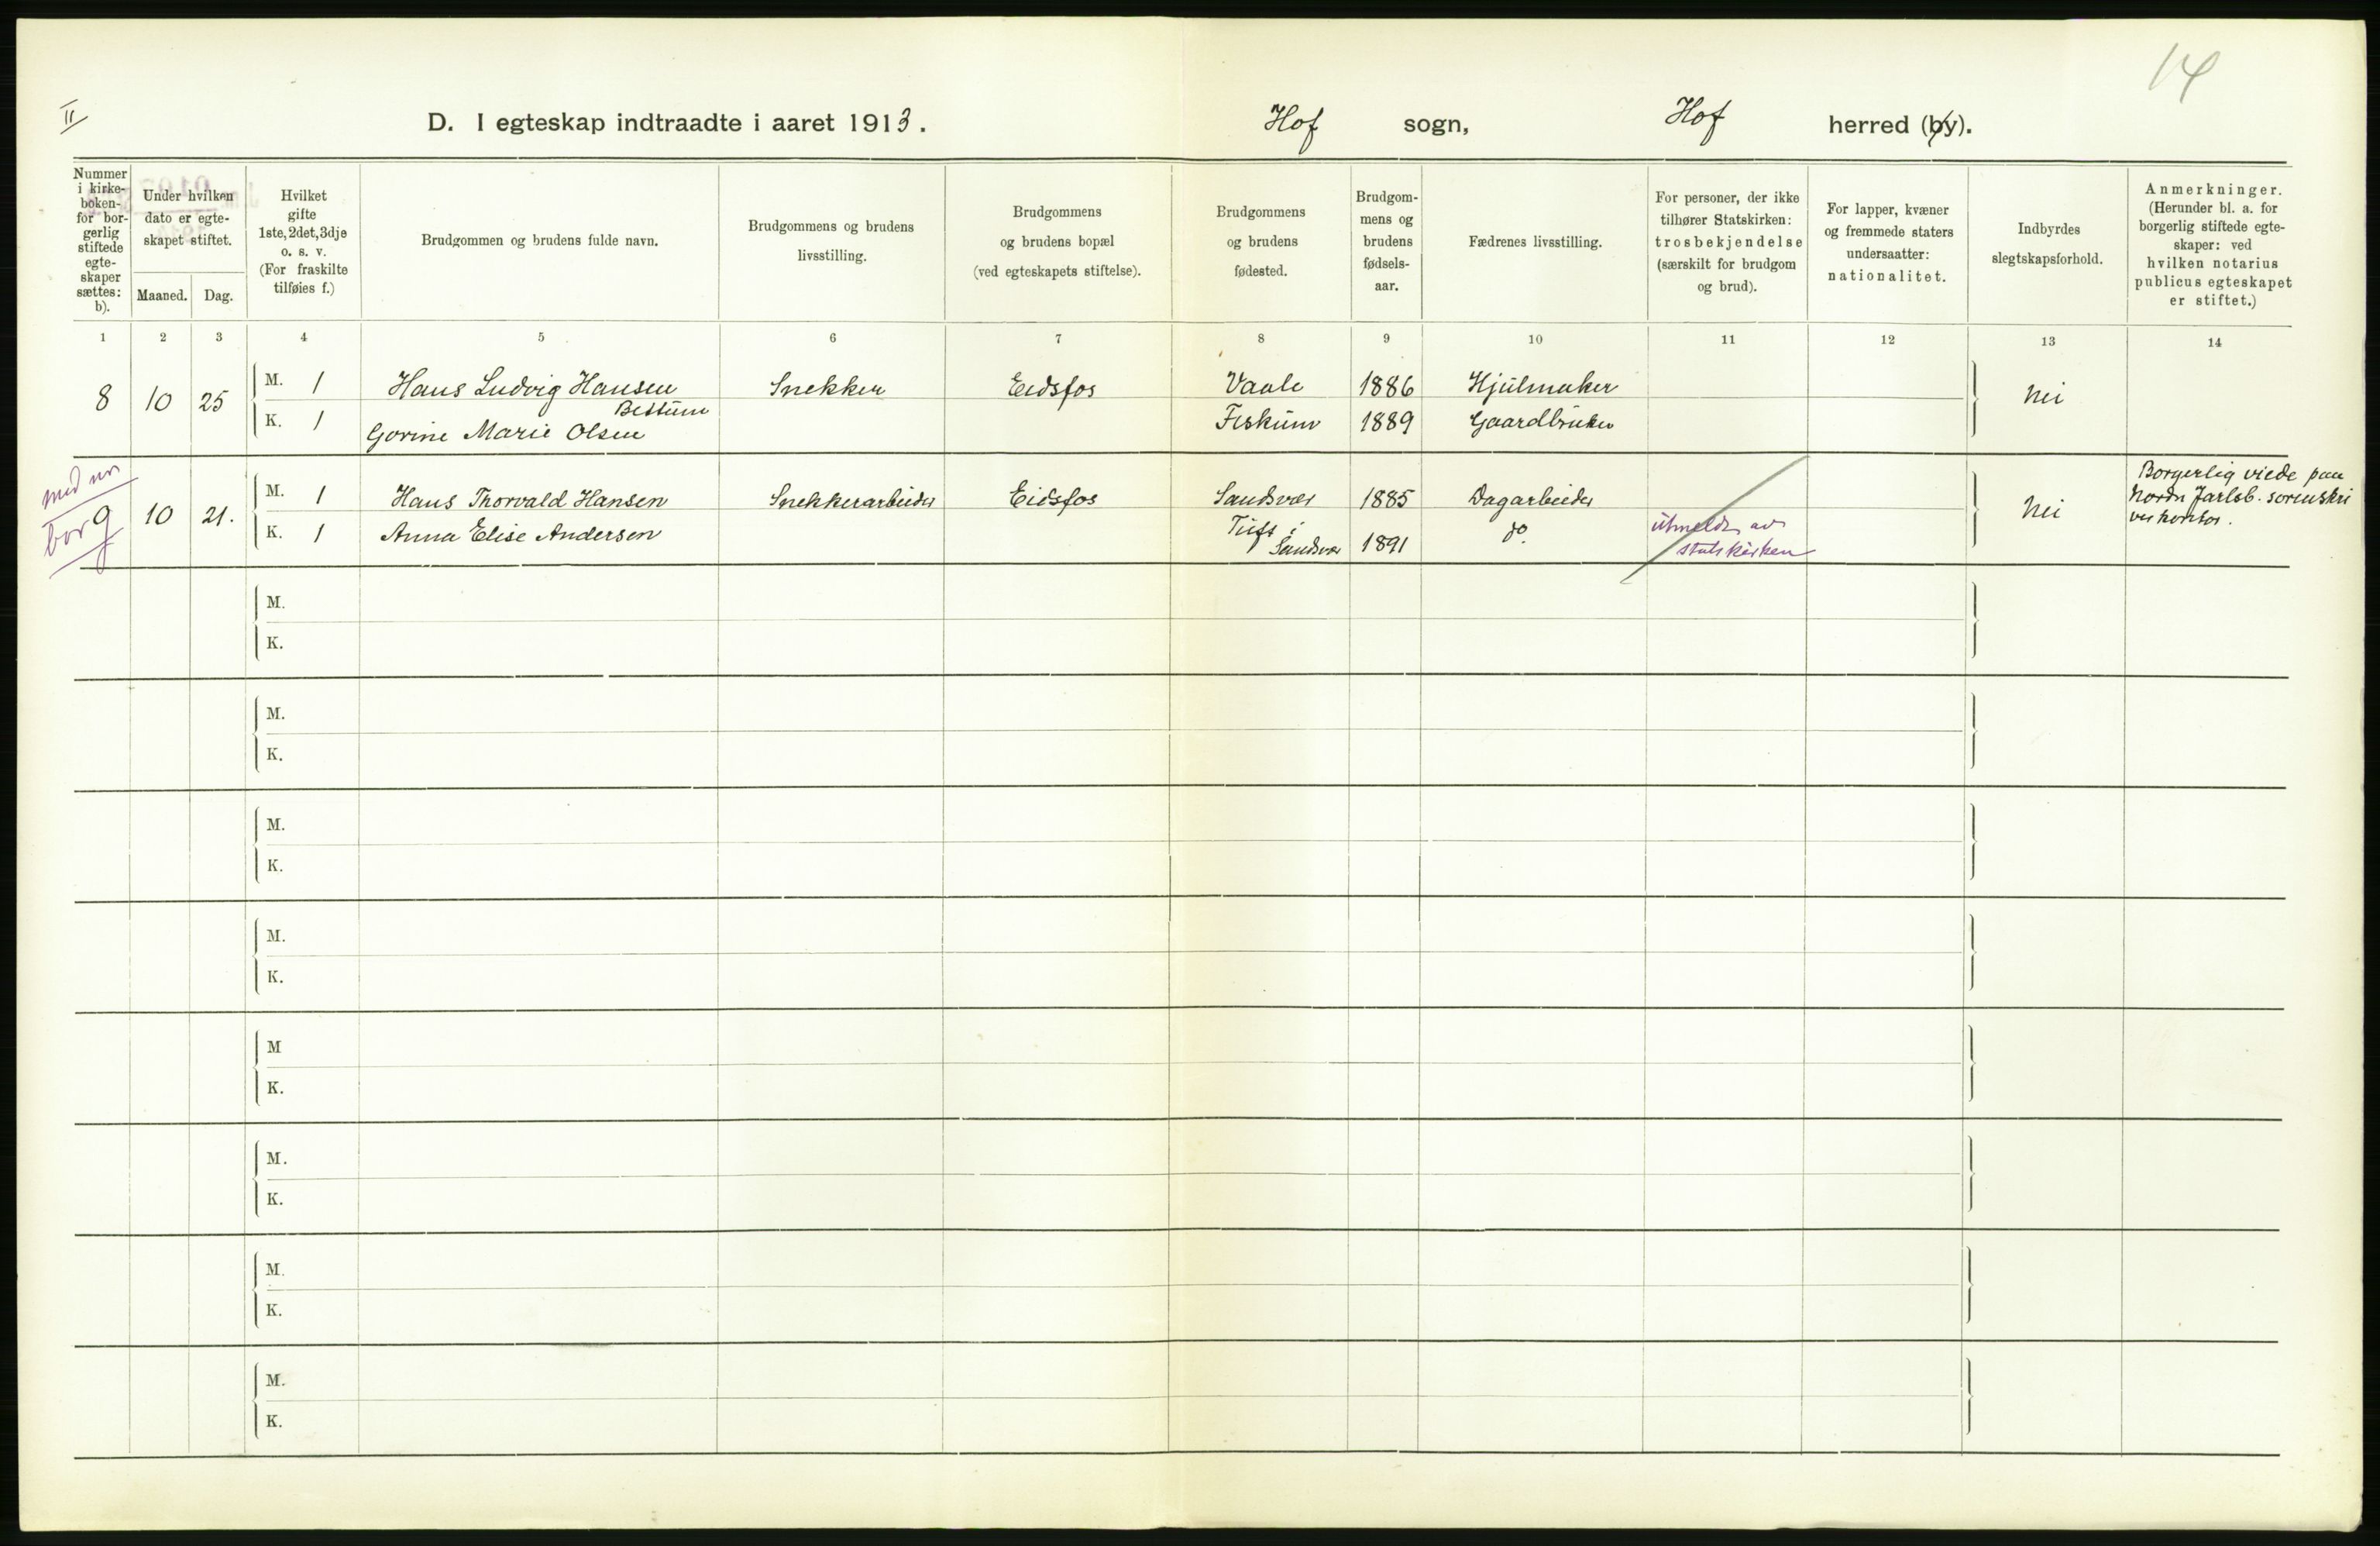 14
II
D. I egteskap indtraadte i aaret 1913. Hof sogn, Hof herred (by).
Nummer i kirke-boken- for bor-gerlig stiftede egte-skaper sættes: b).
Under hvilken dato er egte-skapet stiftet.
Maaned. Dag.
Hvilket gifte 1ste, 2det, 3dje o. s. v. (For fraskilte tilføies f.)
Brudgommen og brudens fulde navn.
Brudgommens og brudens livsstilling.
Brudgommens og brudens bopæl (ved egteskapets stiftelse).
Brudgommens og brudens fødested.
Brudgom-mens og brudens fødsels-aar.
Fædrenes livsstilling.
For personer, der ikke tilhører Statskirken: trosbekjendelse (særskilt for brudgom og brud).
For lapper, kvæner og fremmede staters undersaatter: nationalitet.
Indbyrdes slegtskapsforhold.
Anmerkninger. (Herunder bl. a. for borgerlig stiftede egte-skaper: ved hvilken notarius publicus egteskapet er stiftet.)
1 2 3 4 5 6 7 8 9 10 11 12 13 14
8 10 25 M. 1 Hans Ludvig Hansen Snekker Eidsfos Vaale 1886 Hjulmaker nei
Bettum
K. 1 Gorine Marie Olsen Fiskum 1889 Gaardbruker
med nr
borg
9 10 21. M. 1 Hans Thorvald Hansen Snekkerarbeider Eidsfos Sandsvær 1885 Dagarbeider nei
K. 1 Anna Elise Andersen Tuft i
Sandsvær 1891 do.
utmeldt av
statskirken
Borgerlig viede paa
Nordr Jarlsb. sorenskri
verkontor.
M.
K.
M.
K.
M.
K.
M.
K.
M
K.
M.
K.
M.
K.
M.
K.